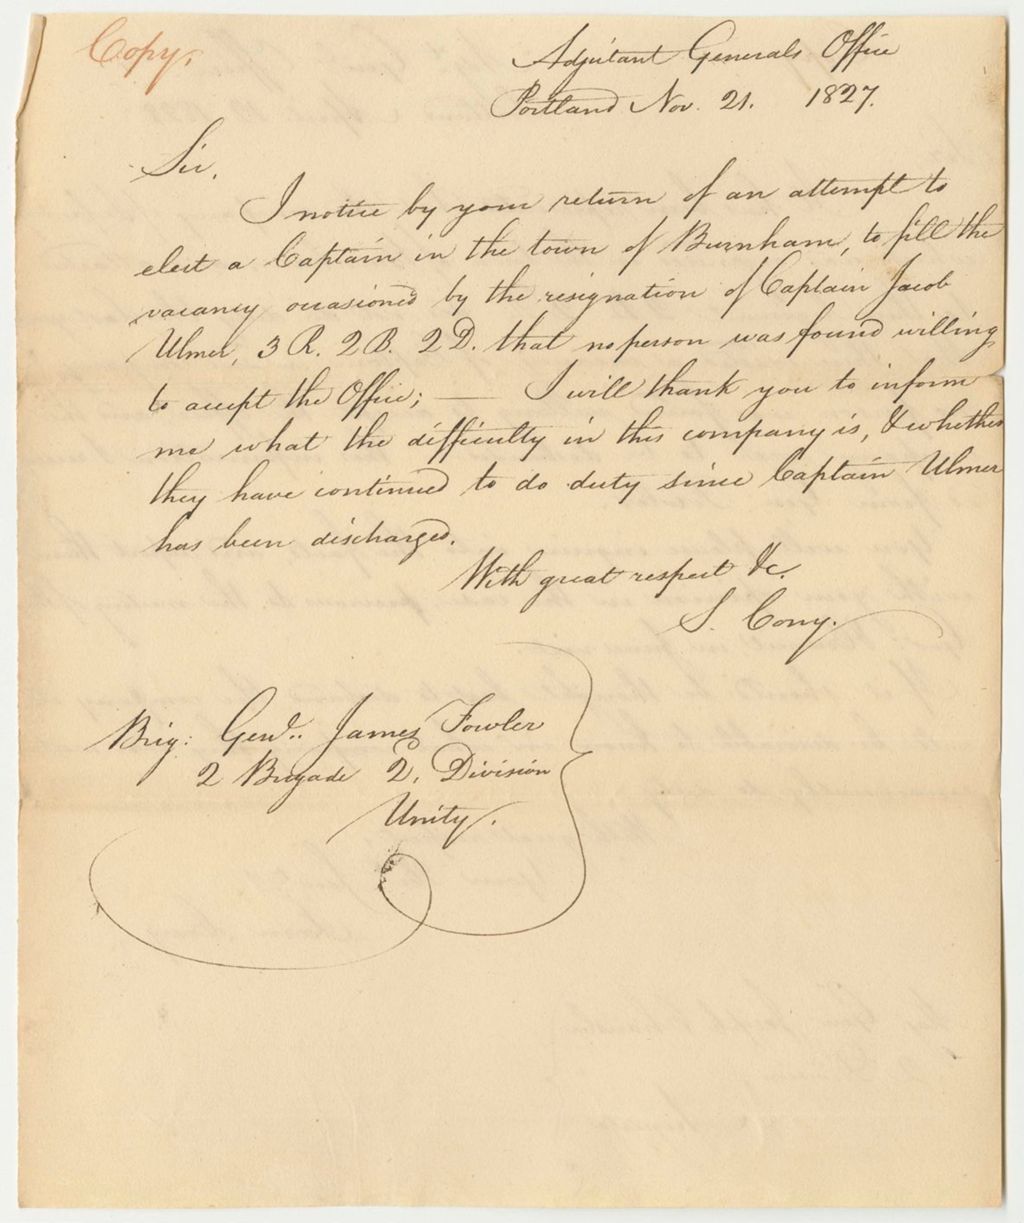 Copy.
Adjutant Generals Office
Portland Nov. 21. 1827.
Sir,
I notice by your return of an attempt to
elect a Captain in the town of Burnham, to fill the
vacancy occasioned by the resignation of Captain Jacob
Ulmer, 3 R. 2 B. 2 D. that no person was found willing
to accept the Office; — I will thank you to inform
me what the difficulty in this company is, & whether
they have continued to do duty since Captain Ulmer
has been discharged.
With great respect &c.
S. Cony.
Brig: Genl.. James Fowler
2 Brigade 2. Division
Unity.